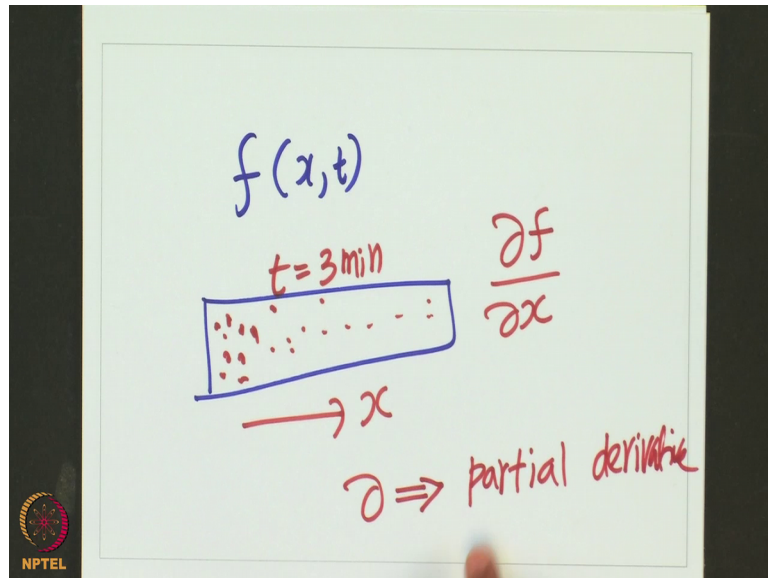 f(x,t)
t = 3 min
∂f
∂x
x
∂ ⇒ partial derivative
NPTEL